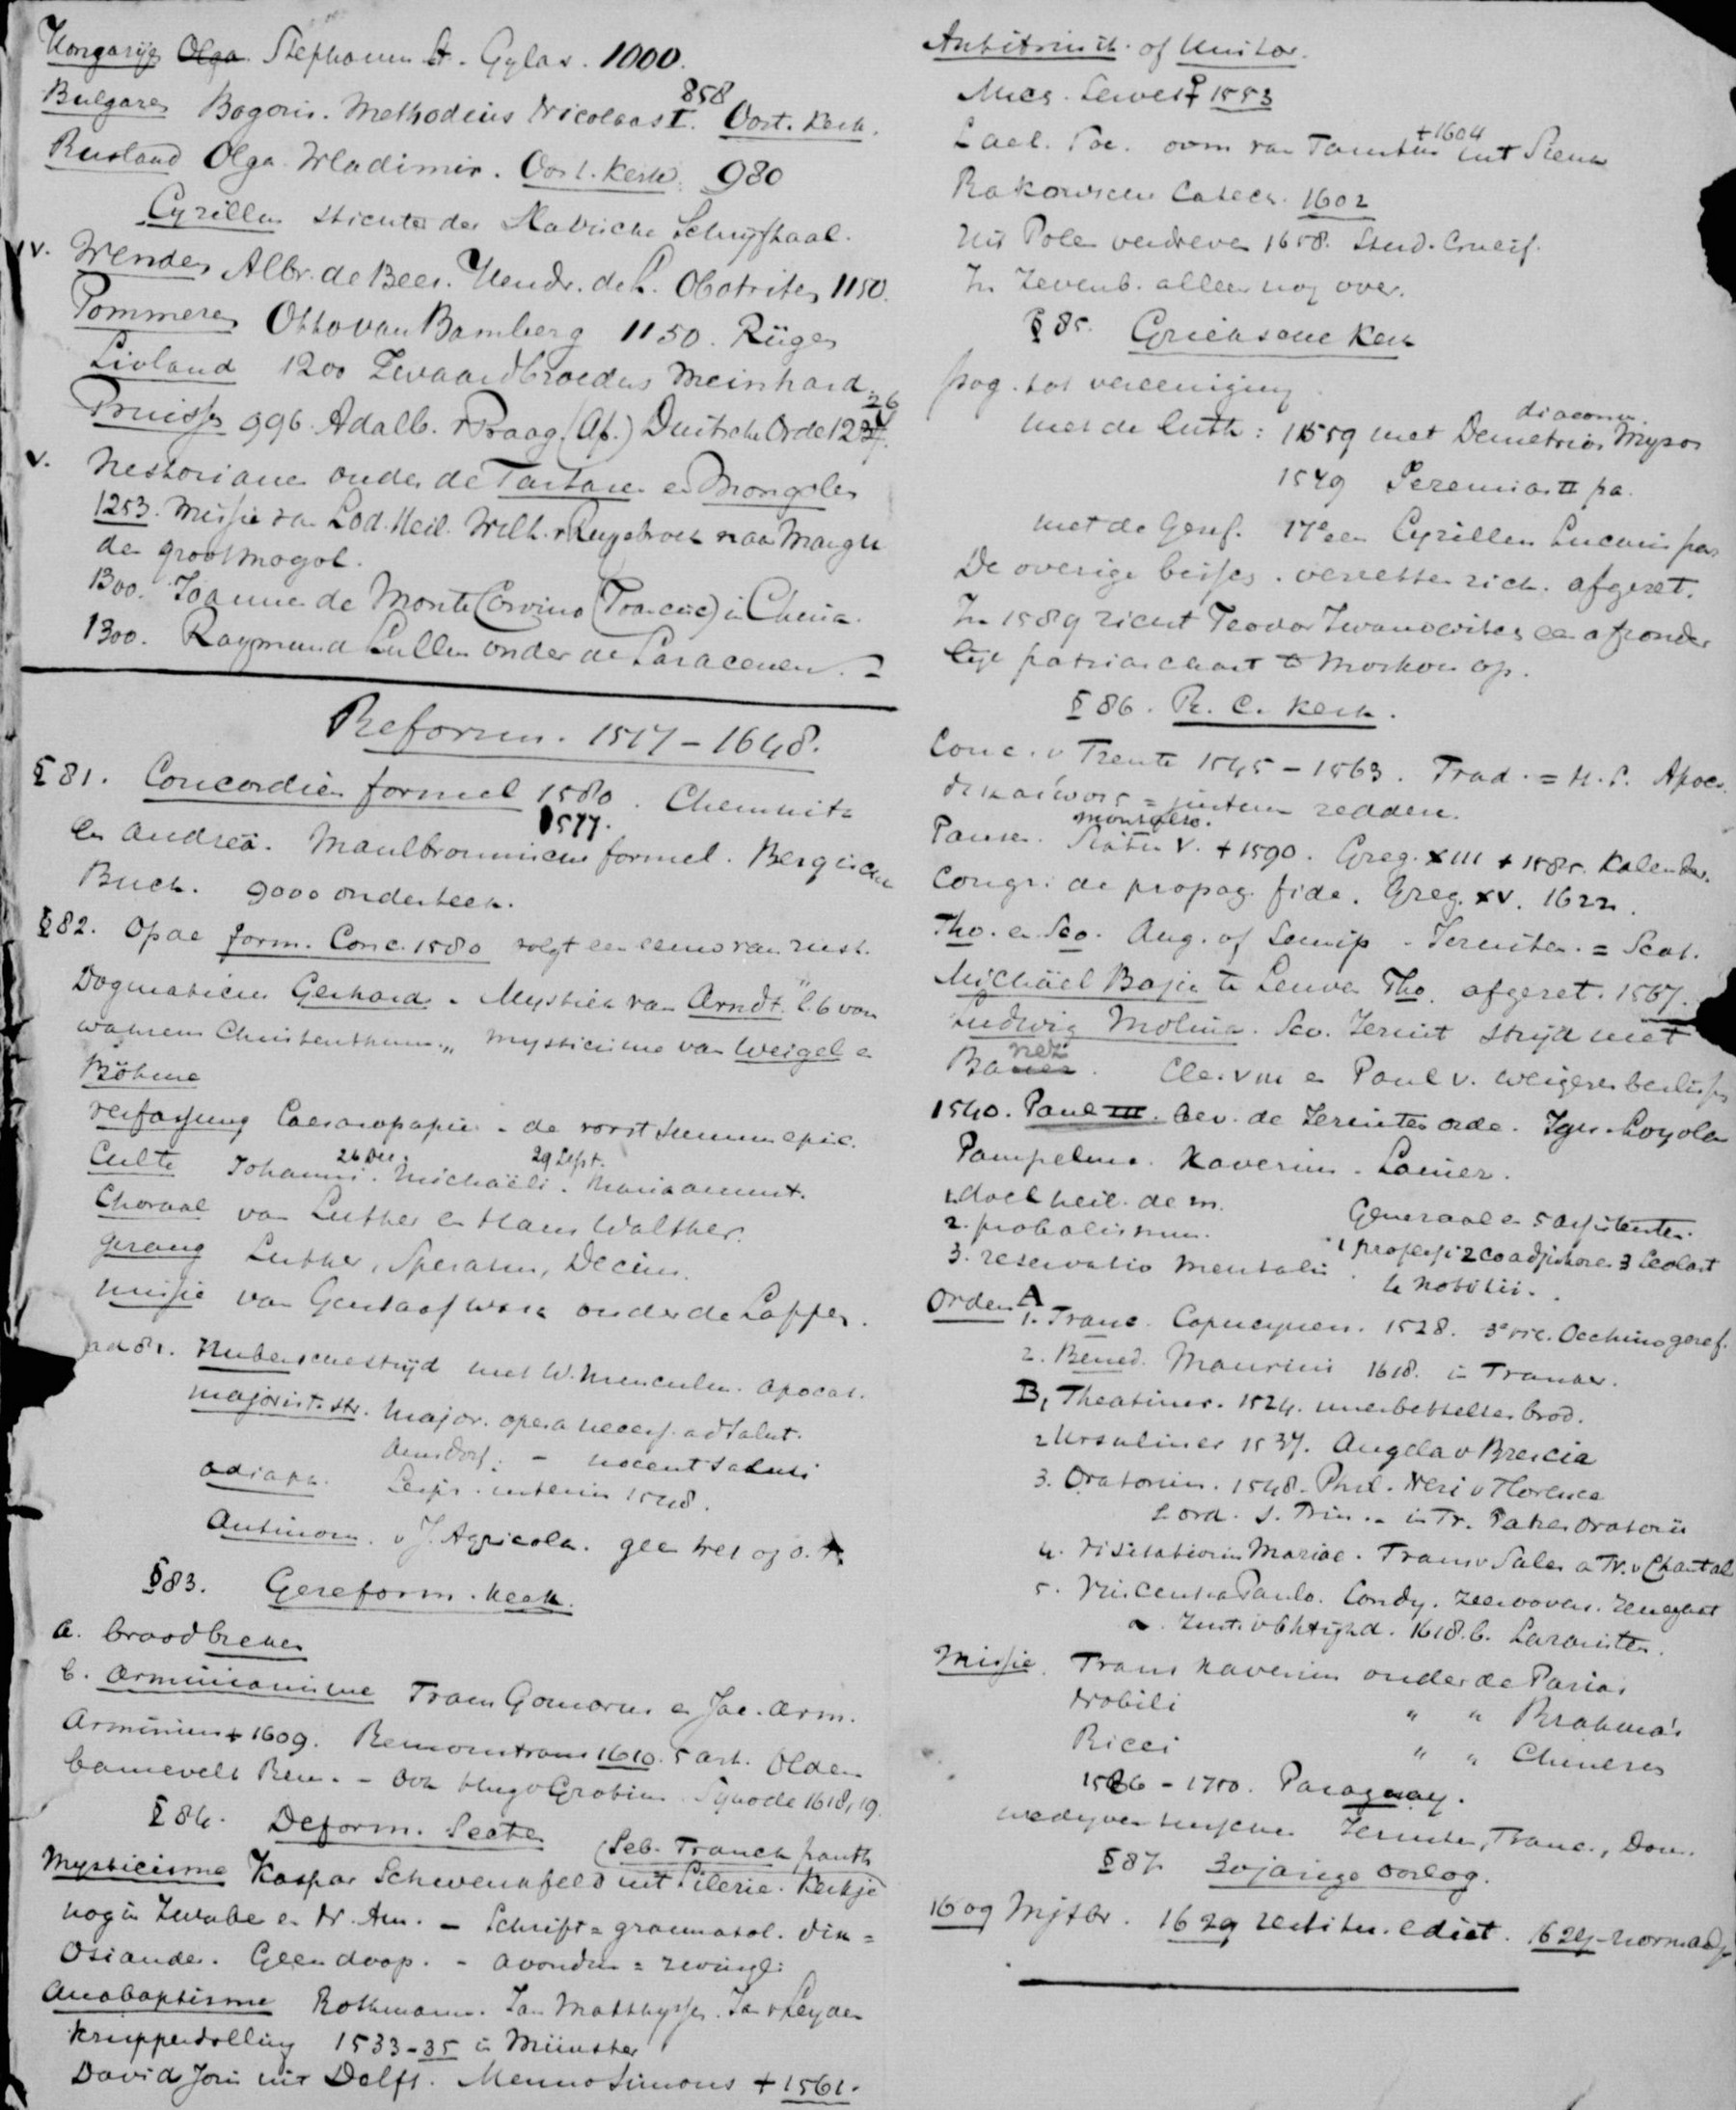 Hongarije Olga. Stephanus St. Gylas. 1000.
858
Bulgaren Bogoris. Methodius Nicolaas I. Oost. Kerk.
Rusland Olga. Wladimir. Oost. Kerk. 980
Cyrillus stichter der Slavische Schrijftaal.
v. Wenden Albr. de Beer. Hendr. de L. Obotriten 1150.
Pommeren Otto van Bamberg 1150. Rügen
Liovland 1200 Zwaardbroeders Meinhard.
26
Pruissen 996. Adalb. v Praag (Af.) Duitsche Orde 123
v. Nestorianen onder de Tartaren en Mongolen
1253. Missie van Lod. Heil. Wilh. v Ruysbroek naar Mangu
den grootmogol.
1300. Joannes de Monte Corvino (Franciic) in China.
1300. Raymund Lullus onder de Saracenen. =
Reform. 1517-1648.
§ 81. Concordiën formel 1580. Chemnitz
1577.
en Andreä. Maulbronnsche formel. Bergische
Buch. 9000 onderteek.
§ 82. Op de form. Conc. 1580 volgt een eeuw van rust.
Dogmaticus Gerhard. Mystiek van Arndt. "l. 6 von
wahrem Christenthum" Mysticisme van Weigel en
Böhme
verfassung Caesaropapie - de vorst summus epic.
26 Dec. 29 Sept.
Culte Johanni. Michaëli. Maria annunt.
Choraal van Luther en Hans Walther.
gezang Luther, Speratus, Decius.
Missie van Gustaaf Wasa onder de Lappen.
ad 81. Huberschestrijd met W. Apocat.
majorist. str. Major. opera necess. ad salut.
Amsdorf: - nocent saluti
adiaph. Leipz. interim 1548.
Antinom. v J. Agricola. geen wet op o.
§ 83. Gereform. Kerk.
a. broodbreken
b. Arminianisme Frans Gomarus en Jac. Arm.
Arminius + 1609. Remonstrans 1610. 5 art. Olden
barnevelt Rem. - Ook Hugo Grotius. Synode 1618, 19.
§ 84. Deform. Secten
(Seb. Franck panth
Mysticisme Kaspar Schwenkfeld uit Silezie. Kerkje
nog in Zwaben en N. Am. - Schrift =
Osiander. Geen doop. - avondm = zwingl:
Anabaptisme Rothmann. Jan Matthyssen. Jan v Leyden
Knipperdolling 1533-35 in Münster
David Joris uit Delft. Menno Simons + 1561.
Antitrinit. of Unitar.
Mich. Servet † 1553
+ 1604
Lael. Soc. oom van Faustus uit Siena
Rakowschen Catech. 1602
Uit Polen verdreven 1658.
In Zevenb. alleen nog over.
§ 85. Grieksche Kerk
pog. tot vereeniging
diaconus
met de luth: 1559 met Demetrios Mysos
1549 Jeremias II pa.
met de Geref. 17e een Cyrillus Lucaris pa
De overige verzetten zich. afgezet.
In 1589 richt Feodor Iwanowitsch een afzonder
lijk patriarchaat te Moskou op.
§ 86. R. C. Kerk.
Conc. v Trente 1545-1563. Trad. = H. S. Apocr.
= redden.
Pausen. Sixtus V. + 1590. Greg. XIII + 1585. Kalender.
Congr: de propag. fide. Greg. XV. 1622.
Tho. en Sco. Aug. of Semip - Jesuiten. = Scot.
Michaël Bajus te Leuven Tho. afgezet. 1567.
Ludwig Molina. Sco. Jesuit strijd met
nez
Ba. Cle. VIII en Paul V. weigeren
1540. Paul III. bev. de Jesuiten orde. Ign. Loyola
Pampeluna. Xaverius. Lainez.
1. doel heil. de m.
2. probalismus.
3. reservatio mentalis
Generaal en 5 assistenten.
1 professi 2 coadjutores 3 Scolast
4 Novitii.
Orden A
1. Franc. Capucynen. 1528. Occhino geref.
2. Bened. Maurini 1618. in Frankr.
B, Theatiner. 1524. brod.
2 Ursulinen 1537. Angela v Brescia
3. Oratorium. 1548. Phil. Neri v Florence
in Fr. Patres Oratorii
4. Visitationis Mariae. Frans v Sales en Fr. v Chantal
5. Vincentius a Paulo. Condy. zeeroovers.
1618. b. Lazaristen.
Missie. Frans Xaverius onder de Parias
Nobili " " Brahma's
Ricci " " Chinezen
1586 - 1750. Paraguay.
wedijver tusschen Jesuiten, Franc., Dom.
§ 87. 30jarige oorlog.
1609 Mjtbr. 1629 restitu. edict. 1624 normaalj